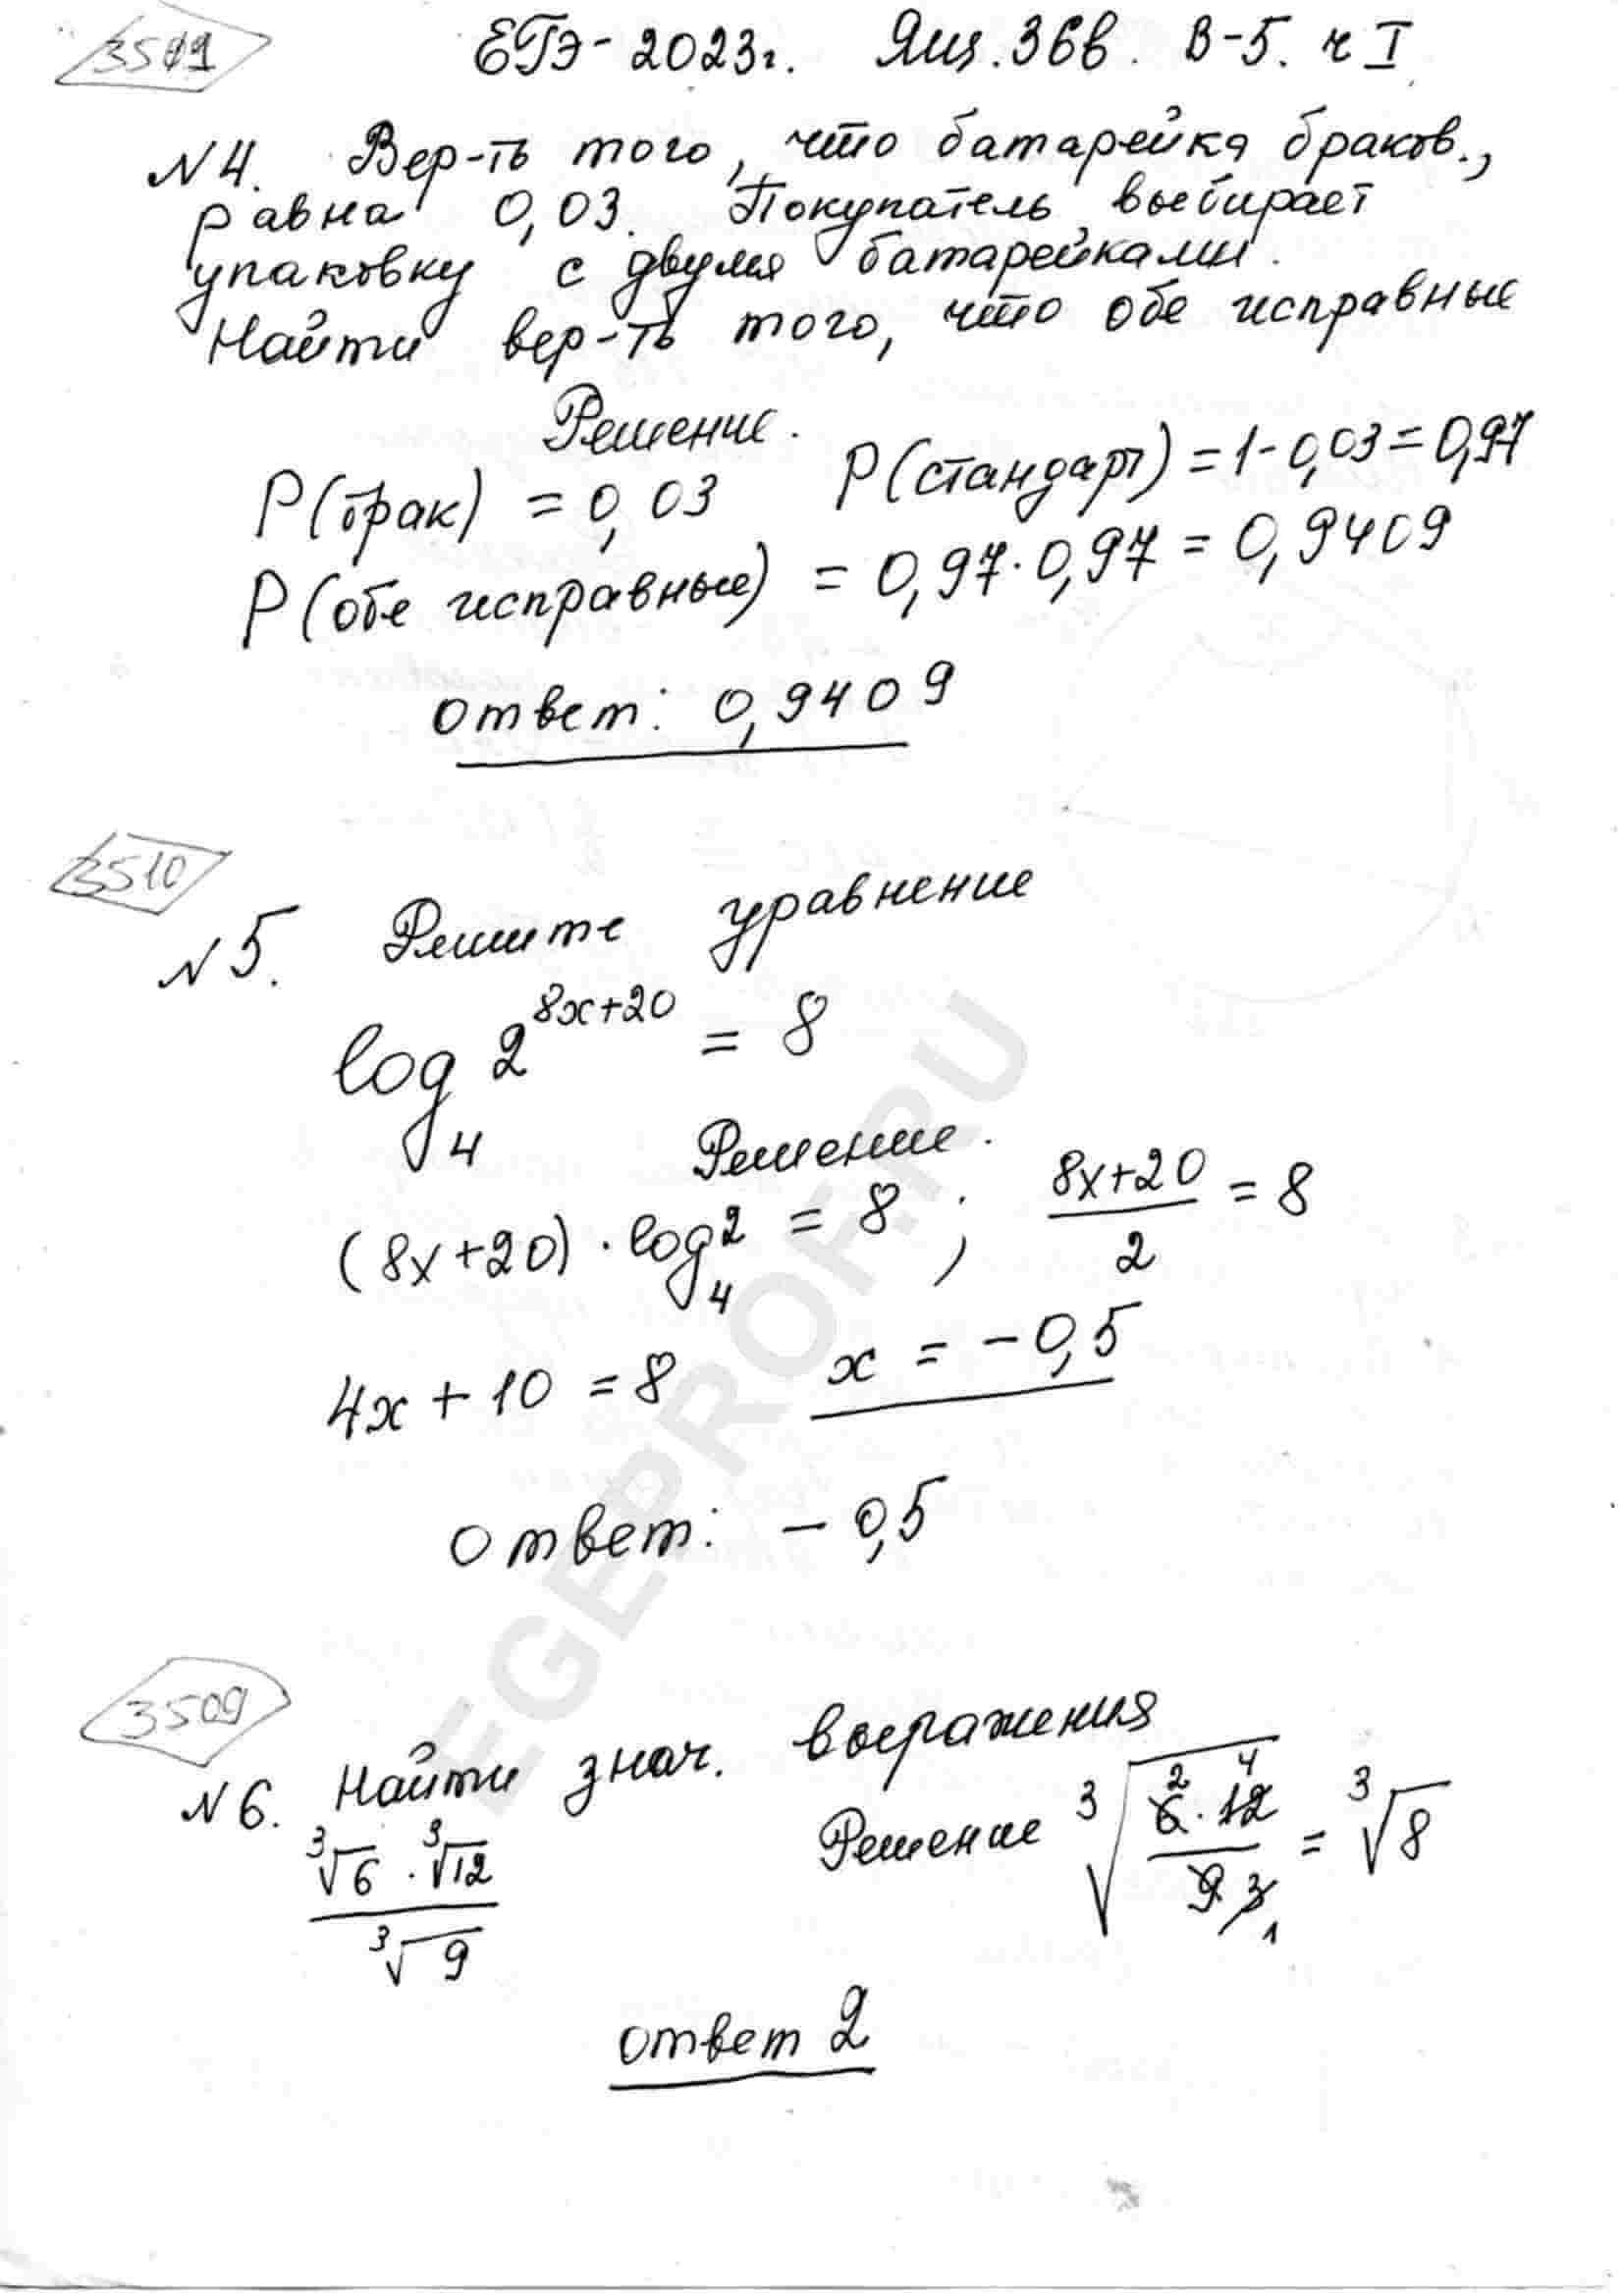 3511 ЕГЭ-2023г. Ящ. 36в. В-5. ч I
N4. Вер-ть того, что батарейка браков.,
равна 0,03. Покупатель выбирает
упаковку с двумя батарейками.
Найти вер-ть того, что обе исправные
Решение.
P(брак) = 0,03 P(стандарт) = 1-0,03 = 0,97
P(обе исправные) = 0,97·0,97 = 0,9409
Ответ: 0,9409
3510
N5. Решите уравнение
log₄ 2^(8x+20) = 8
Решение.
(8x+20)·log₄2 = 8 ; (8x+20)/2 = 8
4x+10 = 8 x = -0,5
Ответ: -0,5
EGEPROF.RU
3509
N6. Найти знач. выражения
(³√6 · ³√12)/³√9 Решение ³√((6·12)/9) = ³√8
Ответ 2